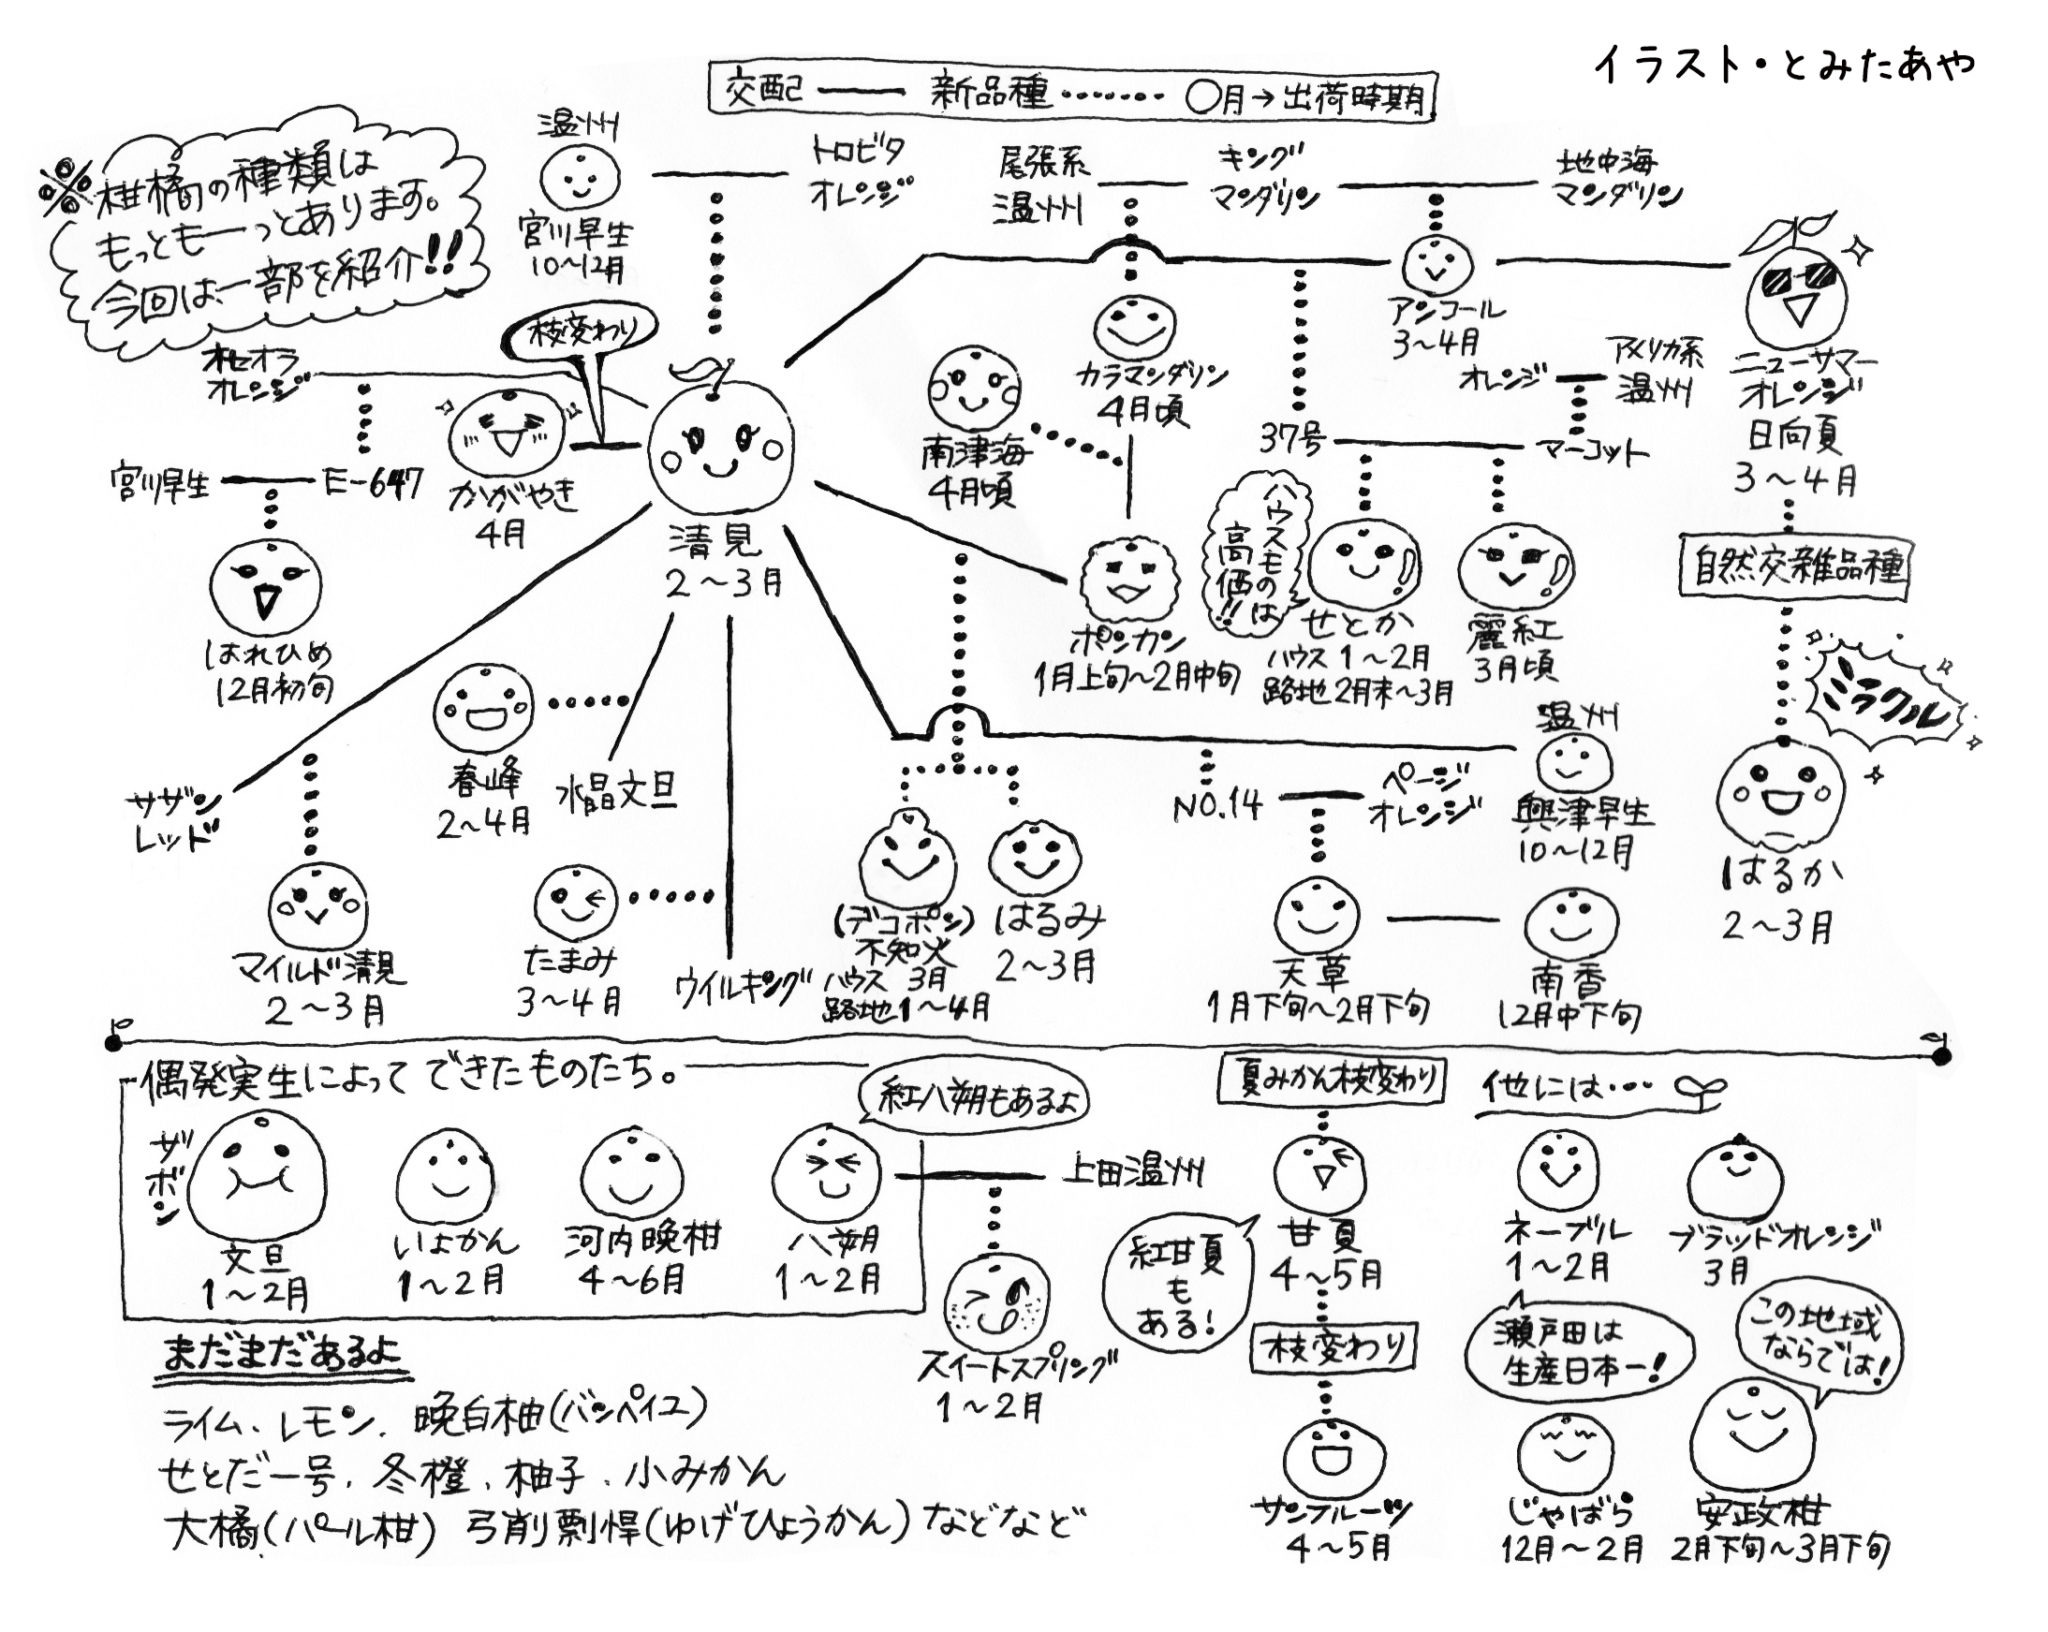 イラスト・とみたあや
交配 新品種 ○月→出荷時期
※柑橘の種類は
もっともーっとあります。
今回は、一部を紹介!!
温州
宮川早生
10〜12月
トロビタ
オレンジ
尾張系
温州
キング
マンダリン
地中海
マンダリン
枝変わり
オセオラ
オレンジ
かがやき
4月
清見
2〜3月
宮川早生
E-647
はれひめ
12月初旬
南津海
4月頃
カラマンダリン
4月頃
アンコール
3〜4月
オレンジ
アメリカ系
温州
ニューサマー
オレンジ
日向夏
3〜4月
37号
マーコット
ハウスものは
高価!!
ポンカン
1月上旬〜2月中旬
せとか
ハウス 1〜2月
路地 2月末〜3月
麗紅
3月頃
自然交雑品種
ミラクル
はるか
2〜3月
サザン
レッド
マイルド清見
2〜3月
春峰
2〜4月
水晶文旦
たまみ
3〜4月
ウイルキング
(デコポン)
不知火
ハウス 3月
路地1〜4月
はるみ
2〜3月
NO.14
ページ
オレンジ
温州
興津早生
10〜12月
天草
1月下旬〜2月下旬
南香
12月中下旬
偶発実生によってできたものたち。
ザボン
文旦
1〜2月
いよかん
1〜2月
河内晩柑
4〜6月
八朔
1〜2月
紅八朔もあるよ
上田温州
スイートスプリング
1〜2月
夏みかん枝変わり
甘夏
4〜5月
紅甘夏
も
ある!
枝変わり
サンフルーツ
4〜5月
他には・・・
ネーブル
1〜2月
ブラッドオレンジ
3月
瀬戸田は
生産日本一!
この地域
ならでは!
じゃばら
12月〜2月
安政柑
2月下旬〜3月下旬
まだまだあるよ
ライム、レモン、晩白柚(バンペイユ)
せとだ一号、冬橙、柚子、小みかん
大橘(パール柑) 弓削瓢悍(ゆげひょうかん)などなど